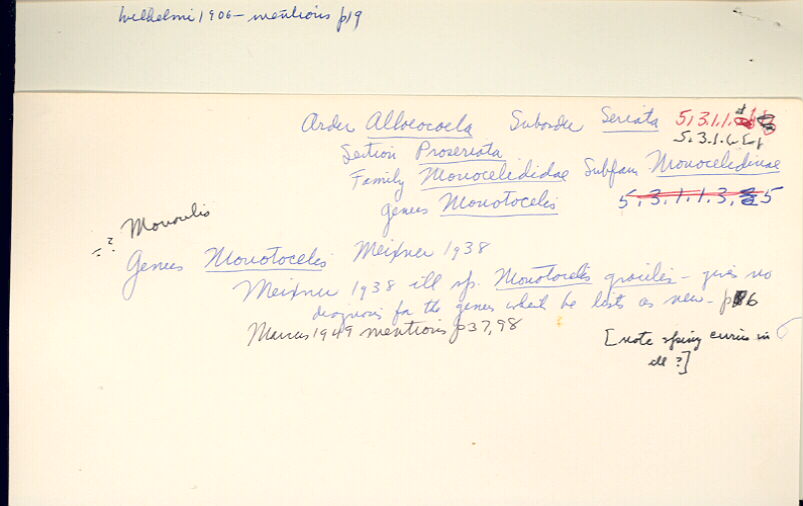 Wilhelmi 1906 - mentions p19
Order Alloeocoela Suborder Seriata 5.3.1.1.
5.3.1.
Section Proseriata
Family Monocelididae Subfam Monocelidinae
Genus Monotocelis 5.3.1.1.3.5
Monocelis
?
Genus Monotocelis Meixner 1938
Meixner 1938 ill sp. Monotocelis gracilis - gives no
diagnosis for the genus which he lists as new - p 6
Marcus 1949 mentions p37,98
[note spiny cirrus in
ill ?]